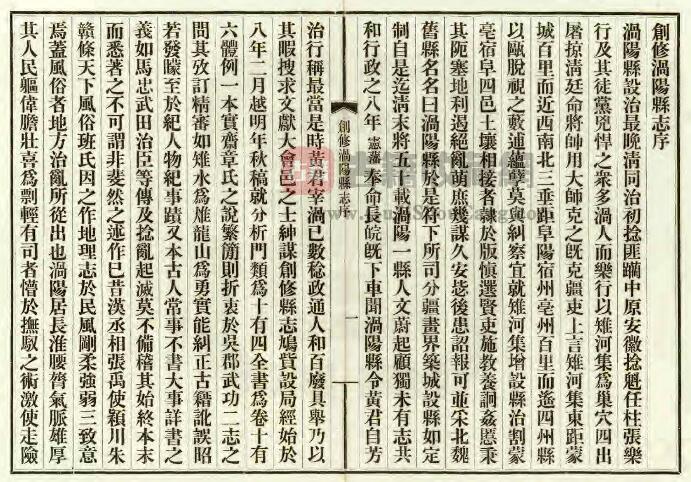 創修渦陽縣志序
渦陽縣設治最晚清同治初捻匪躪中原安徽捻魁任柱張樂
行及其徒黨兇悍之衆多渦人而樂行以雉河集爲巢穴四出
屠掠清廷命將帥用大師克之既克疆吏上言雉河集東距蒙
城百里而近西南北三垂距阜陽宿州亳州百里而遙四州縣
以甌脫視之藪逋蘊孽莫與糾察宜就雉河集增設縣治割蒙
亳宿阜四邑土壤相接者隸於版慎選賢吏施教養詗姦慝秉
其阨塞地利遏絕亂萌庶幾謀久安毖後患詔報可並采北魏
舊縣名名曰渦陽縣於是符下所司分疆畫界築城設縣如定
制自是迄清末將五十載渦陽一縣人文蔚起顧獨未有志共
和行政之八年憲藩奉命長皖既下車聞渦陽縣令黃君自芳
創修渦陽縣志序
一
治行稱最當是時黃君宰渦已數稔政通人和百廢具舉乃以
其暇搜求文獻大會邑之士紳謀創修縣志鳩貲設局經始於
八年二月越明年秋稿就分析門類爲十有四全書爲卷十有
六體例一本實齋章氏之說繁簡則折衷於吳郡武功二志之
間其攷訂精審如雉水爲雎龍山爲勇實能糾正古籍訛誤昭
若發矇至於紀人物紀事蹟又本古人常事不書大事詳書之
義如馬忠武田治臣等傳及捻亂起滅莫不備稽其始終本末
而悉著之不可謂非斐然之述作巳昔漢丞相張禹使穎川朱
贛條天下風俗班氏因之作地理志於民風剛柔強弱三致意
焉蓋風俗者地方治亂所從出也渦陽居長淮腰膂氣脈雄厚
其人民軀偉膽壯喜爲剽輕有司者懵於撫馭之術激使走險